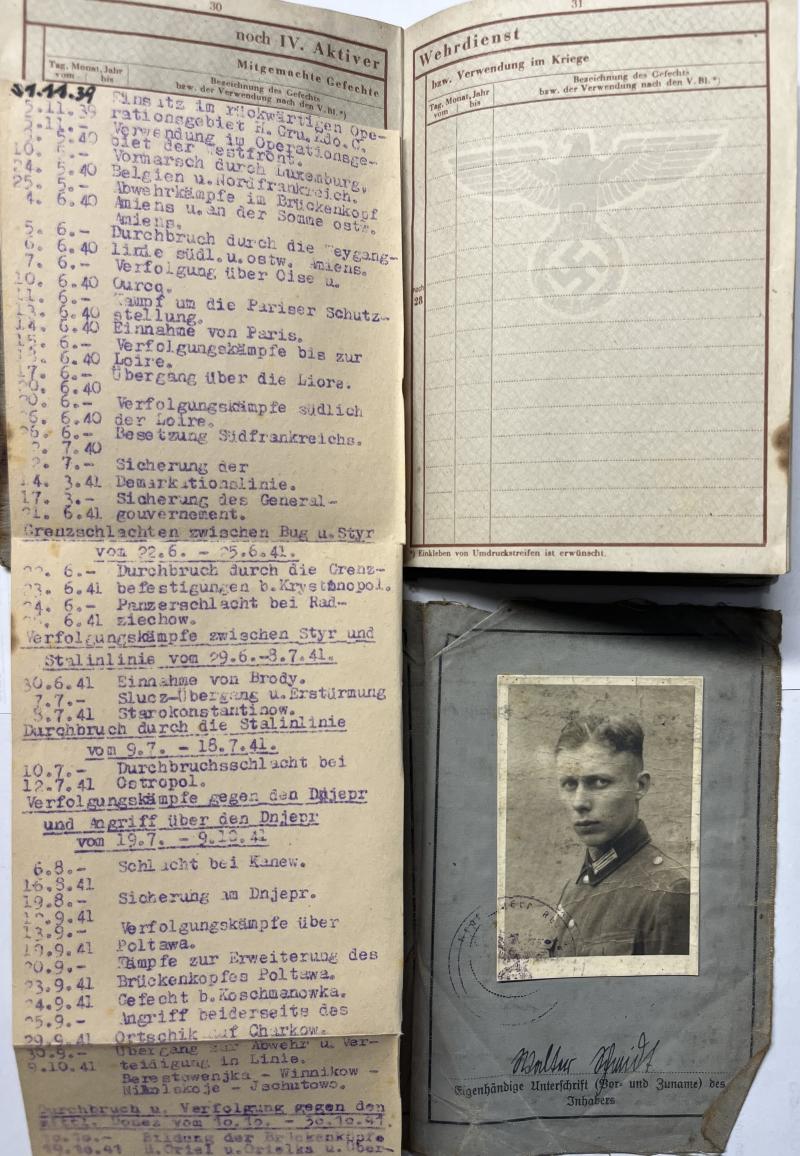 30
noch IV. Aktiver
Mitgemachte Gefechte
Tag, Monat, Jahr
vom bis
Bezeichnung des Gefechts
bzw. der Verwendung nach den V. Bl.*)
11.39
5.11.39 Einsatz im rückwärtigen Ope-
rationsgebiet H. Gru. Kdo. C.
5.40 Verwendung im Operationsge-
biet der Westfront.
10. 5.- Vormarsch durch Luxemburg,
24. 5.40 Belgien u. Nordfrankreich.
25. 5.- Abwehrkämpfe im Brückenkopf
4. 6.40 Amiens u. an der Somme ostw.
Amiens.
5. 6.- Durchbruch durch die Weygang-
6. 6.40 linie südl. u. ostw. Amiens.
7. 6.- Verfolgung über Oise u.
10. 6.40 Ourcq.
11. 6.- Kampf um die Pariser Schutz-
13. 6.40 stellung.
14. 6.40 Einnahme von Paris.
15. 6.- Verfolgungskämpfe bis zur
6.40 Loire.
17. 6.- Übergang über die Liore.
20. 6.40
20. 6.- Verfolgungskämpfe südlich
26. 6.40 der Loire.
26. 6.- Besetzung Südfrankreichs.
2. 7.40
2. 7.- Sicherung der
14. 3.41 Demarkationslinie.
17. 3.- Sicherung des General-
21. 6.41 gouvernement.
Grenzschlachten zwischen Bug u. Styr
vom 22.6. - 25.6.41.
22. 6.- Durchbruch durch die Grenz-
23. 6.41 befestigungen b. Krystinopol.
24. 6.- Panzerschlacht bei Rad-
6.41 ziechow.
Verfolgungskämpfe zwischen Styr und
Stalinlinie vom 29.6.-8.7.41.
30.6.41 Einnahme von Brody.
7.7.- Slucz-Übergang u. Erstürmung
8.7.41 Starokonstantinow.
Durchbruch durch die Stalinlinie
vom 9.7. - 18.7.41.
10.7.- Durchbruchsschlacht bei
12.7.41 Ostropol.
Verfolgungskämpfe gegen den Dnjepr
und Angriff über den Dnjepr
vom 19.7. - 9.10.41
6.8.- Schlacht bei Kanew.
16.8.41
19.8.- Sicherung am Dnjepr.
9.41
13.9.- Verfolgungskämpfe über
19.9.41 Poltawa.
20.9.- Kämpfe zur Erweiterung des
23.9.41 Brückenkopfes Poltawa.
24.9.41 Gefecht b. Koschmanowka.
25.9.- Angriff beiderseits des
29.9.41 Ortschik auf Charkow.
30.9.- Übergang zur Abwehr u. Ver-
9.10.41 teidigung in Linie.
Berestowenjka - Winnikow -
Nikolskoje - Jachutowo.
Durchbruch u. Verfolgung gegen den
mittl. Donez vom 10.10. - 30.10.41.
10.10.- Bildung der Brückenköpfe
19.10.41 u. Oriel u. Orielka u. Über-
31
Wehrdienst
bzw. Verwendung im Kriege
Tag, Monat, Jahr
vom bis
Bezeichnung des Gefechts
bzw. der Verwendung nach den V. Bl.*)
noch
28
*) Einkleben von Umdruckstreifen ist erwünscht.
Walter
Eigenhändige Unterschrift (Vor- und Zuname) des
Inhabers